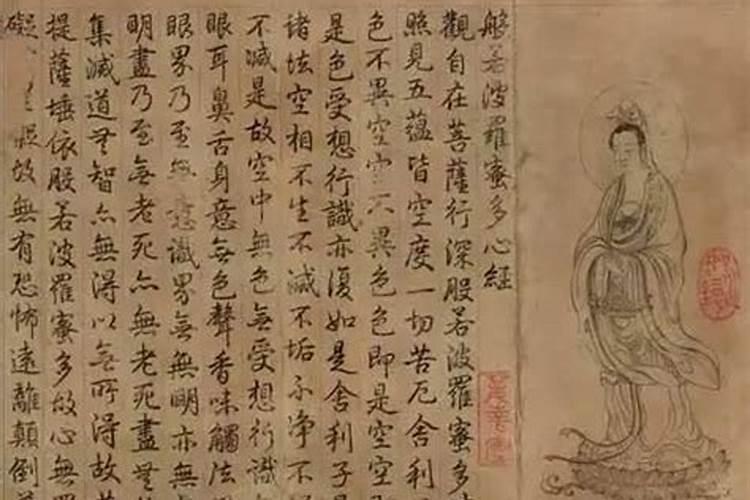 般若波羅蜜多心經
觀自在菩薩行深般若波羅蜜多
照見五蘊皆空度一切苦厄舍利
色不異空空不異色色即是空空
是色受想行識亦復如是舍利子是
諸法空相不生不滅不垢不淨不
不減是故空中無色無受想行識
眼耳鼻舌身意無色聲香味觸法
眼界乃至無意識界無無明亦無
明盡乃至無老死亦無老死盡無
集滅道無智亦無得以無所得故菩
提薩埵依般若波羅蜜多故心無罣
礙故無有恐怖遠離顛倒